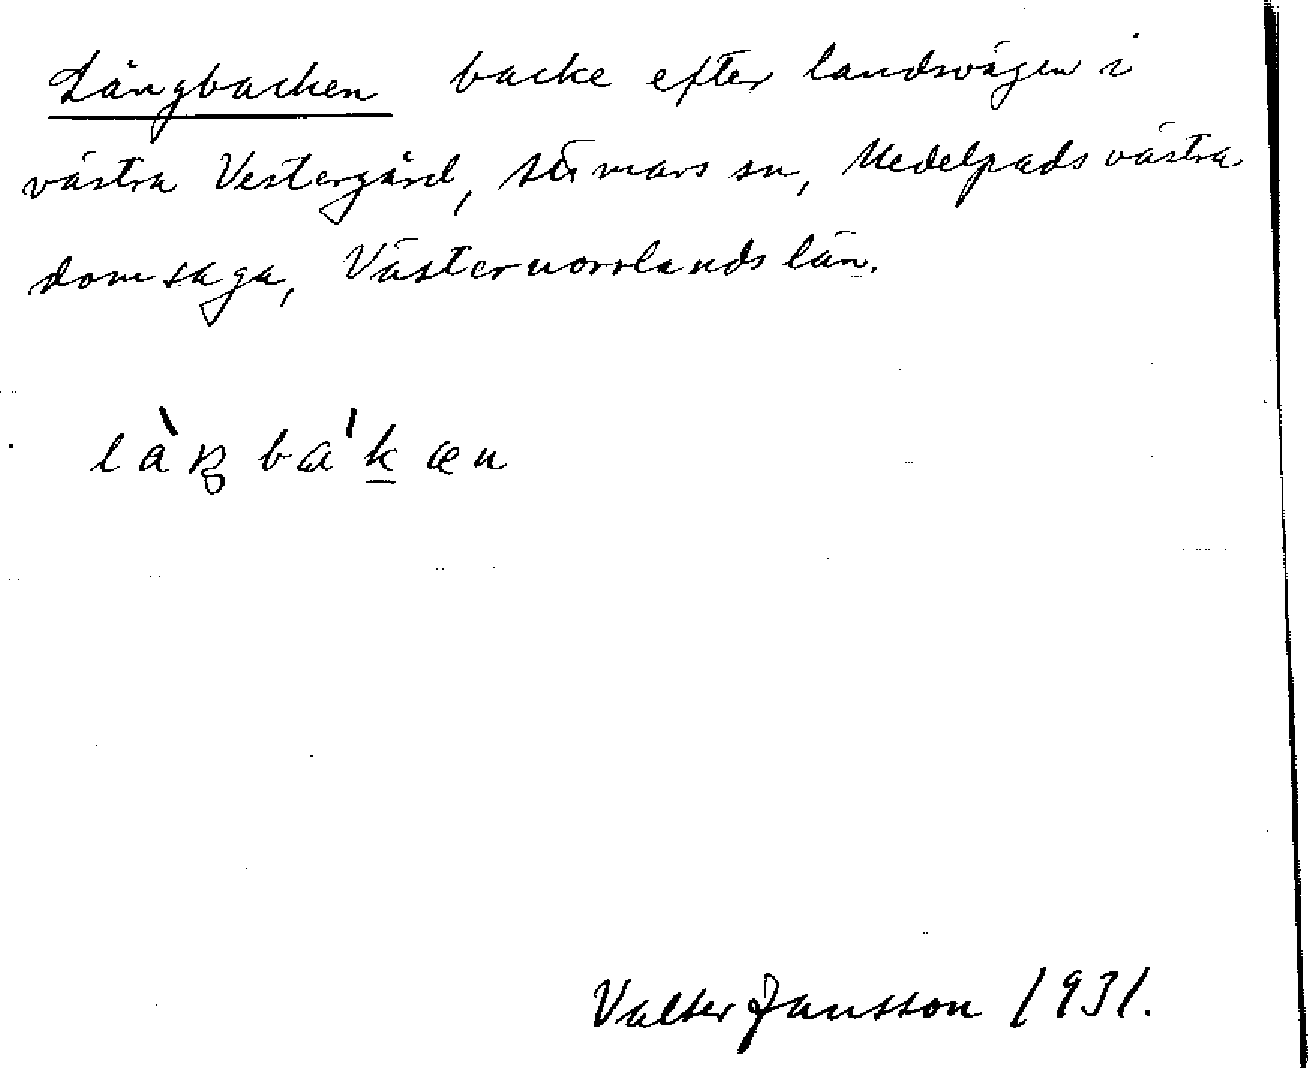 Långbacken backe efter landsvägen i
västra Vestergård, Stömars sn, Medelpads västra
domsaga, Västernorrlands län.
làŋba'kæn
Valter Jansson 1931.